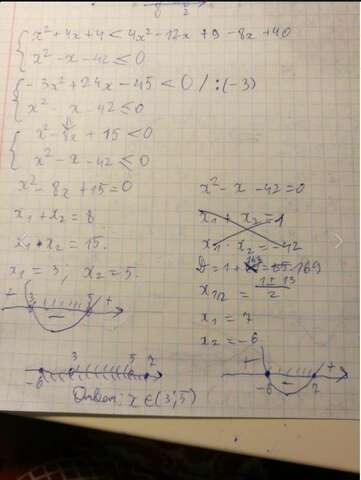 { x² + 4x + 4 < 4x² - 12x + 9 - 8x + 40
x² - x - 42 ≤ 0
{ -3x² + 24x - 45 < 0 / :(-3)
x² - x - 42 ≤ 0
{ x² - 8x + 15 < 0
x² - x - 42 ≤ 0
x² - 8x + 15 = 0
x₁ + x₂ = 8
x₁ • x₂ = 15.
x₁ = 3; x₂ = 5.
+ 3 - 5 +
x² - x - 42 = 0
x₁ + x₂ = 1
x₁ · x₂ = -42
D = 1 + 168 = 169
x₁/₂ = 1 ± 13 / 2
x₁ = 7
x₂ = -6
-6 3 5 7
+ -6 - 7 +
Ответ: x ∈ (3; 5)